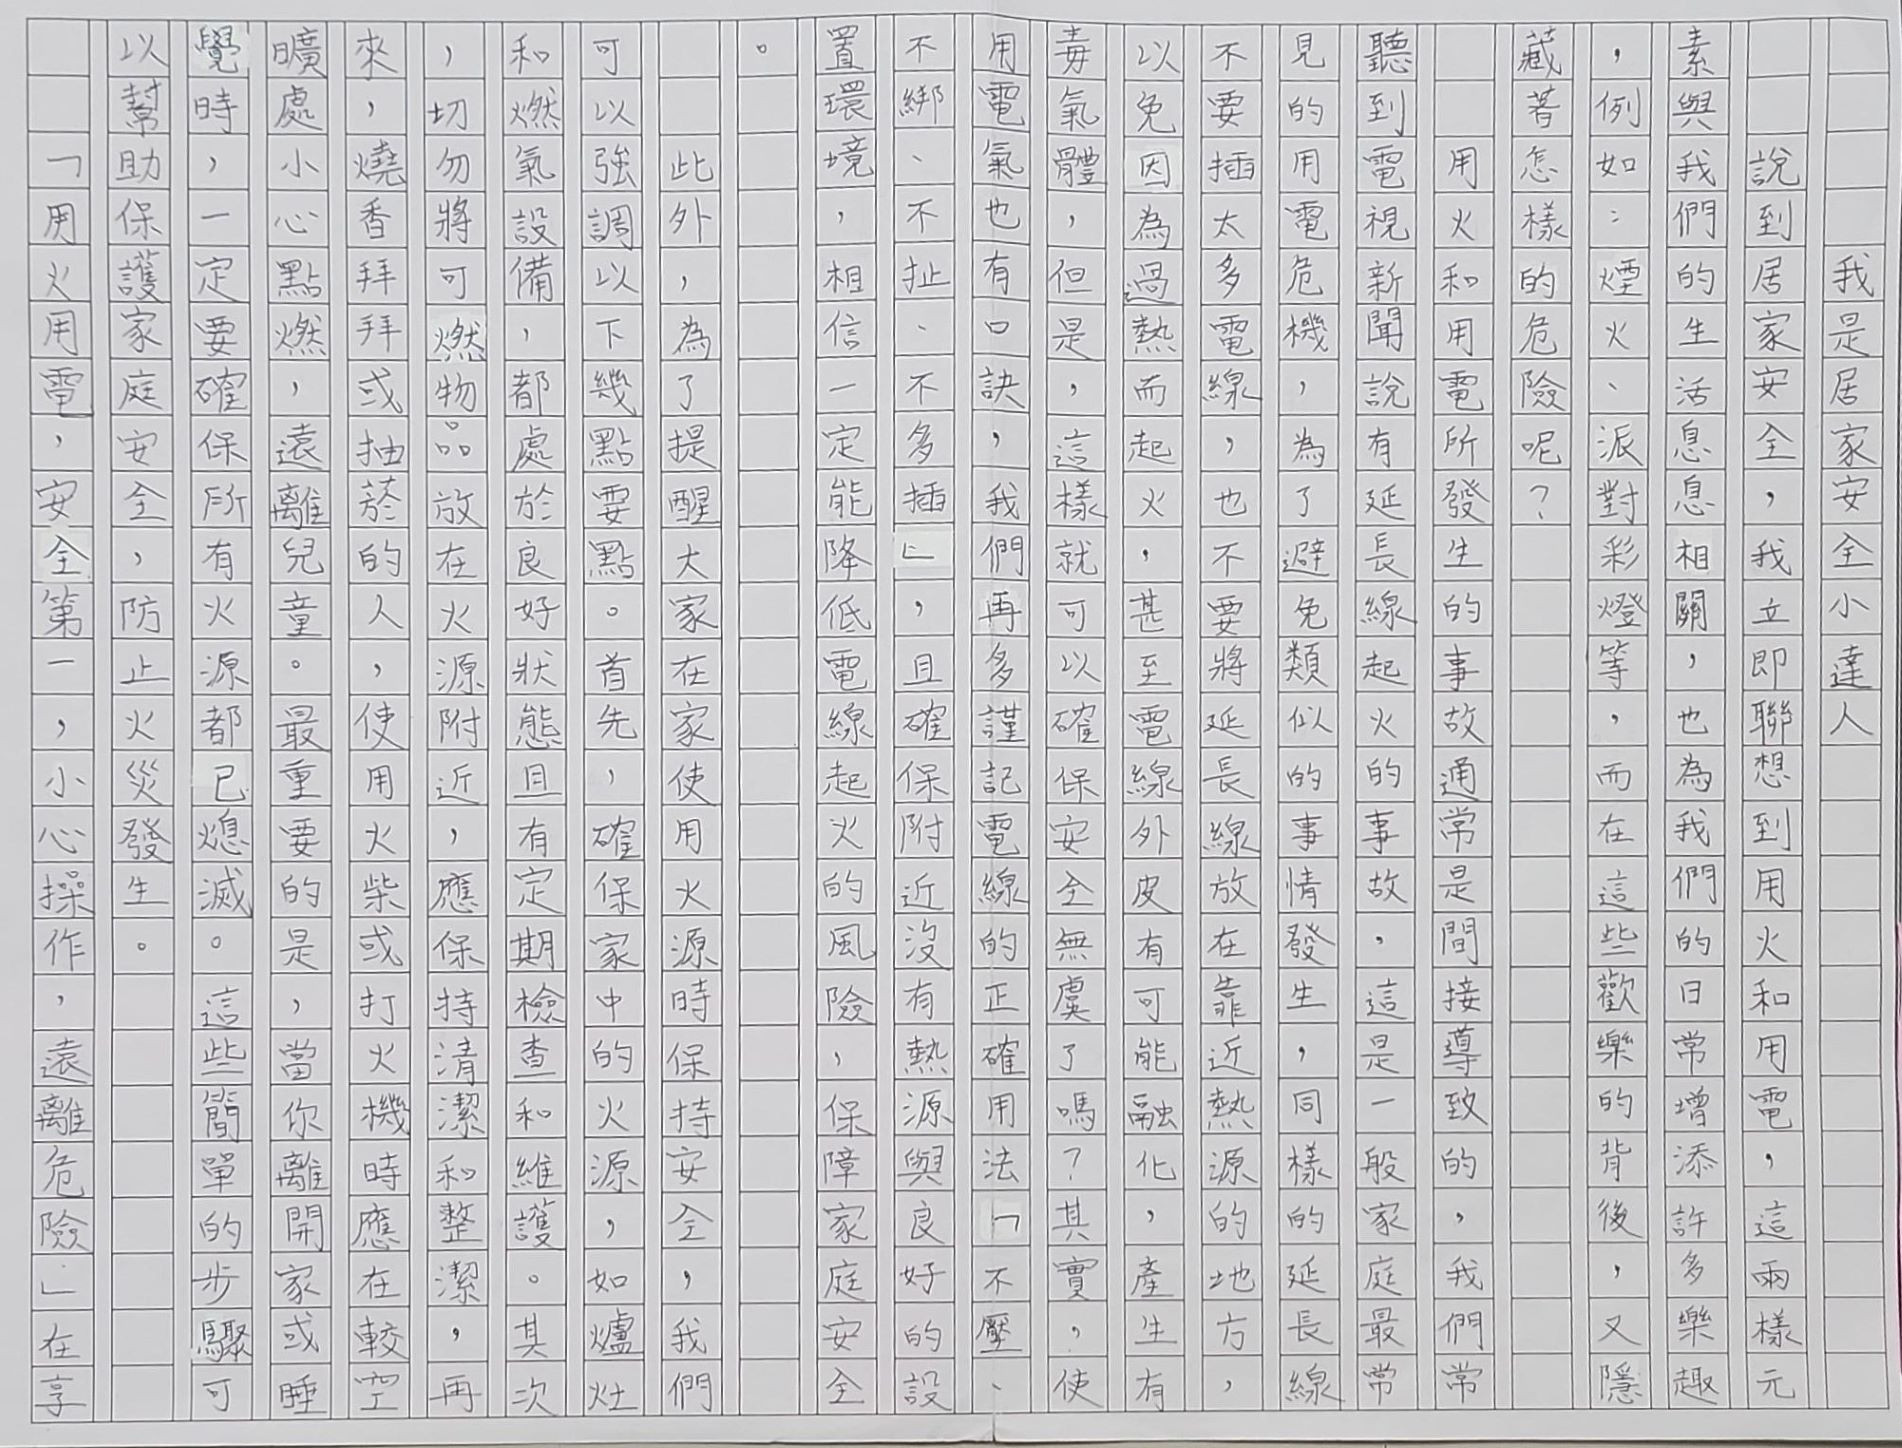 我是居家安全小達人
說到居家安全，我立即聯想到用火和用電，這兩樣元
素與我們的生活息息相關，也為我們的日常增添許多樂趣
，例如：煙火、派對彩燈等，而在這些歡樂的背後，又隱
藏著怎樣的危險呢？
用火和用電所發生的事故通常是間接導致的，我們常
聽到電視新聞說有延長線起火的事故，這是一般家庭最常
見的用電危機，為了避免類似的事情發生，同樣的延長線
不要插太多電線，也不要將延長線放在靠近熱源的地方，
以免因為過熱而起火，甚至電線外皮有可能融化，產生有
毒氣體，但是，這樣就可以確保安全無虞了嗎？其實，使
用電氣也有口訣，我們再多謹記電線的正確用法「不壓、
不綁、不扯、不多插」，且確保附近沒有熱源與良好的設
置環境，相信一定能降低電線起火的風險，保障家庭安全
。
此外，為了提醒大家在家使用火源時保持安全，我們
可以強調以下幾點要點。首先，確保家中的火源，如爐灶
和燃氣設備，都處於良好狀態且有定期檢查和維護。其次
，切勿將可燃物品放在火源附近，應保持清潔和整潔，再
來，燒香拜拜或抽菸的人，使用火柴或打火機時應在較空
曠處，小心點燃，遠離兒童。最重要的是，當你離開家或睡
覺時，一定要確保所有火源都已熄滅。這些簡單的步驟可
以幫助保護家庭安全，防止火災發生。
「用火用電，安全第一，小心操作，遠離危險」在享